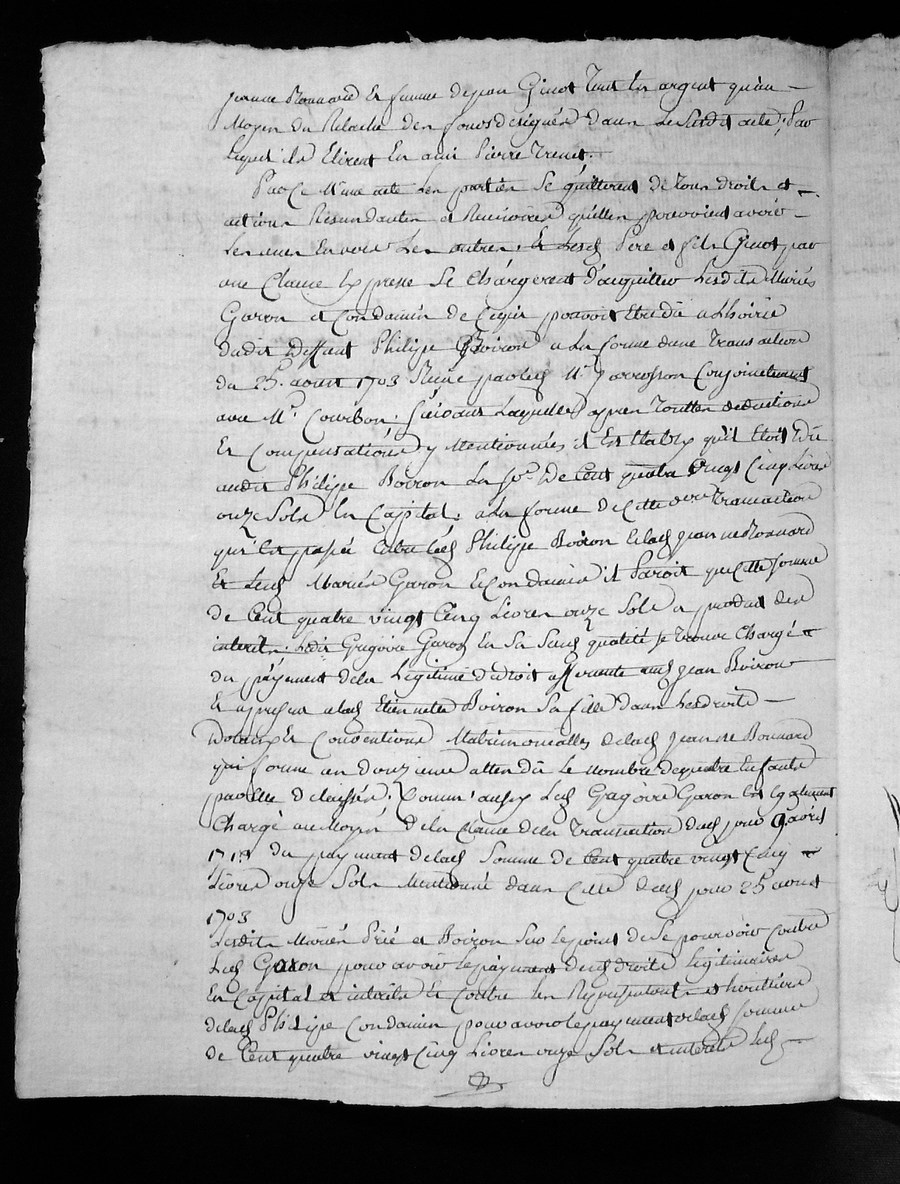 jeanne Bonnard et femme de jean Ginot tout en argent qu'au
Moyen du Relache des fonds designés dans le Susdit acte, Sur
lequel ils Elirent En ami Pierre
Par Ce Meme acte Les parties Se quitterent de tous droits et
actions Resindantes et Recisoires qu'elles pouvoient avoir
Les unes Envers Les autres, et Lesds Pere et fils Ginot par
une Clause Expresse Se Chargerent d'acquitter Lesdits Mariés
Garon et Condamin de Ce qui pouvoit Etre dû a L'hoirie
dudit Deffunt Philippe Boiron a La forme d'une Transaction
du 25e aoust 1703 Reçue par led Me Jarrosson Conjoinctement
avec Me Courbon, Suivant Laquelle apres Touttes deductions
Et Compensations y Mentionnées il Est Etably qu'il Etoit Dû
audit Philippe Boiron La so.e De Cent quatre Vingt Cinq Livres
onze Sols En Capital, a La forme de Cette dre Transaction
qui Est passée Entre led Philippe Boiron lad jeanne Bonnard
Et Lesd Mariés Garon et Condamin il Paroit que Cette Somme
de Cent quatre vingt Cinq Livres onze Sols a produit des
interets, Ledit Gregoire Garon En Sa Susd qualité se trouve Chargé
du payement de la Legitime de droit afferante aud jean Boiron
Et apres lui a lad Etiennette Boiron Sa fille dans Les droits
Dotaux Et Conventions Matrimonialles de lad jeanne Bonnard
qui forme un douzieme attendû Le Nombre de quatre Enfants
par Elle delaissés, Comm'aussy Led Gregoire Garon Est Egalement
Chargé au Moyen de la Clause de la Transaction dud jour 9 avril
du payement de lad Somme de Cent quatre vingt Cinq
Livres onze Sols Mentionné dans Celle dud jour 25 aoust
1703
Lesdits Mariés Prié et Boiron Sur le point de Se pourvoir Contre
Led Garon pour avoir le payement desd droits Legitimaires
En Capital et interets Et Contre Les Representants et heritiers
de lad Philippe Condamin pour avoir le payement de lad Somme
de Cent quatre vingt Cinq Livres onze Sols et interets Led